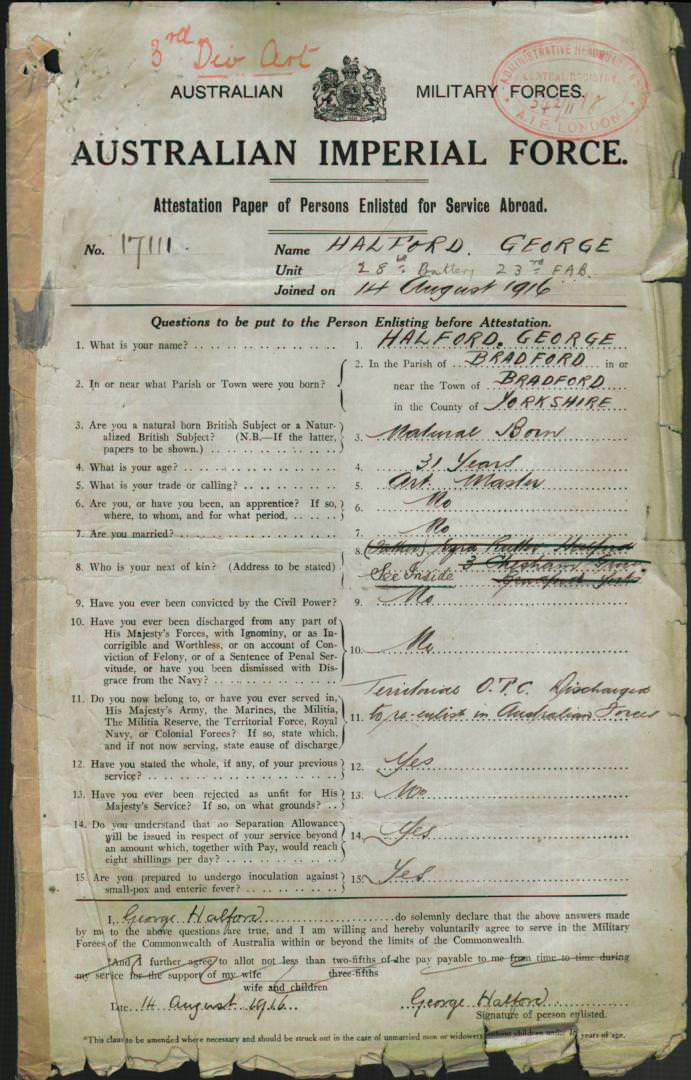 3rd Div Art
AUSTRALIAN MILITARY FORCES.
ADMINISTRATIVE HEADQUARTERS
CENTRAL REGISTRY
A.I.F. LONDON
AUSTRALIAN IMPERIAL FORCE.
Attestation Paper of Persons Enlisted for Service Abroad.
No. 17111. Name HALFORD. GEORGE
Unit 28th Battery 23rd FAB.
Joined on 14 August 1916
Questions to be put to the Person Enlisting before Attestation.
1. What is your name? 1. HALFORD. GEORGE
2. In or near what Parish or Town were you born? 2. In the Parish of BRADFORD in or
near the Town of BRADFORD
in the County of YORKSHIRE
3. Are you a natural born British Subject or a Natur-
alized British Subject? (N.B.—If the latter, 3. Natural Born
papers to be shown.)
4. What is your age? 4. 31 Years
5. What is your trade or calling? 5. Art Master
6. Are you, or have you been, an apprentice? If so, 6. No
where, to whom, and for what period,
7. Are you married? 7. No
8. Who is your next of kin? (Address to be stated) 8. (Father) Halford
See Inside 3
9. Have you ever been convicted by the Civil Power? 9. No
10. Have you ever been discharged from any part of
His Majesty's Forces, with Ignominy, or as In-
corrigible and Worthless, or on account of Con- 10. No
viction of Felony, or of a Sentence of Penal Ser-
vitude, or have you been dismissed with Dis-
grace from the Navy?
11. Do you now belong to, or have you ever served in, Discharged
His Majesty's Army, the Marines, the Militia,
The Militia Reserve, the Territorial Force, Royal 11. to re-enlist in Australian Forces
Navy, or Colonial Forces? If so, state which,
and if not now serving, state cause of discharge
12. Have you stated the whole, if any, of your previous 12. Yes
service?
13. Have you ever been rejected as unfit for His 13. No
Majesty's Service? If so, on what grounds?
14. Do you understand that no Separation Allowance
will be issued in respect of your service beyond 14. Yes
an amount which, together with Pay, would reach
eight shillings per day?
15. Are you prepared to undergo inoculation against 15. Yes
small-pox and enteric fever?
I, George Halford do solemnly declare that the above answers made
by me to the above questions are true, and I am willing and hereby voluntarily agree to serve in the Military
Forces of the Commonwealth of Australia within or beyond the limits of the Commonwealth.
*And I further agree to allot not less than two-fifths of the pay payable to me from time to time during
my service for the support of my wife three-fifths
wife and children
Date 14 August 1916 George Halford
Signature of person enlisted.
*This clause to be amended where necessary and should be struck out in the case of unmarried men or widowers without children under years of age.